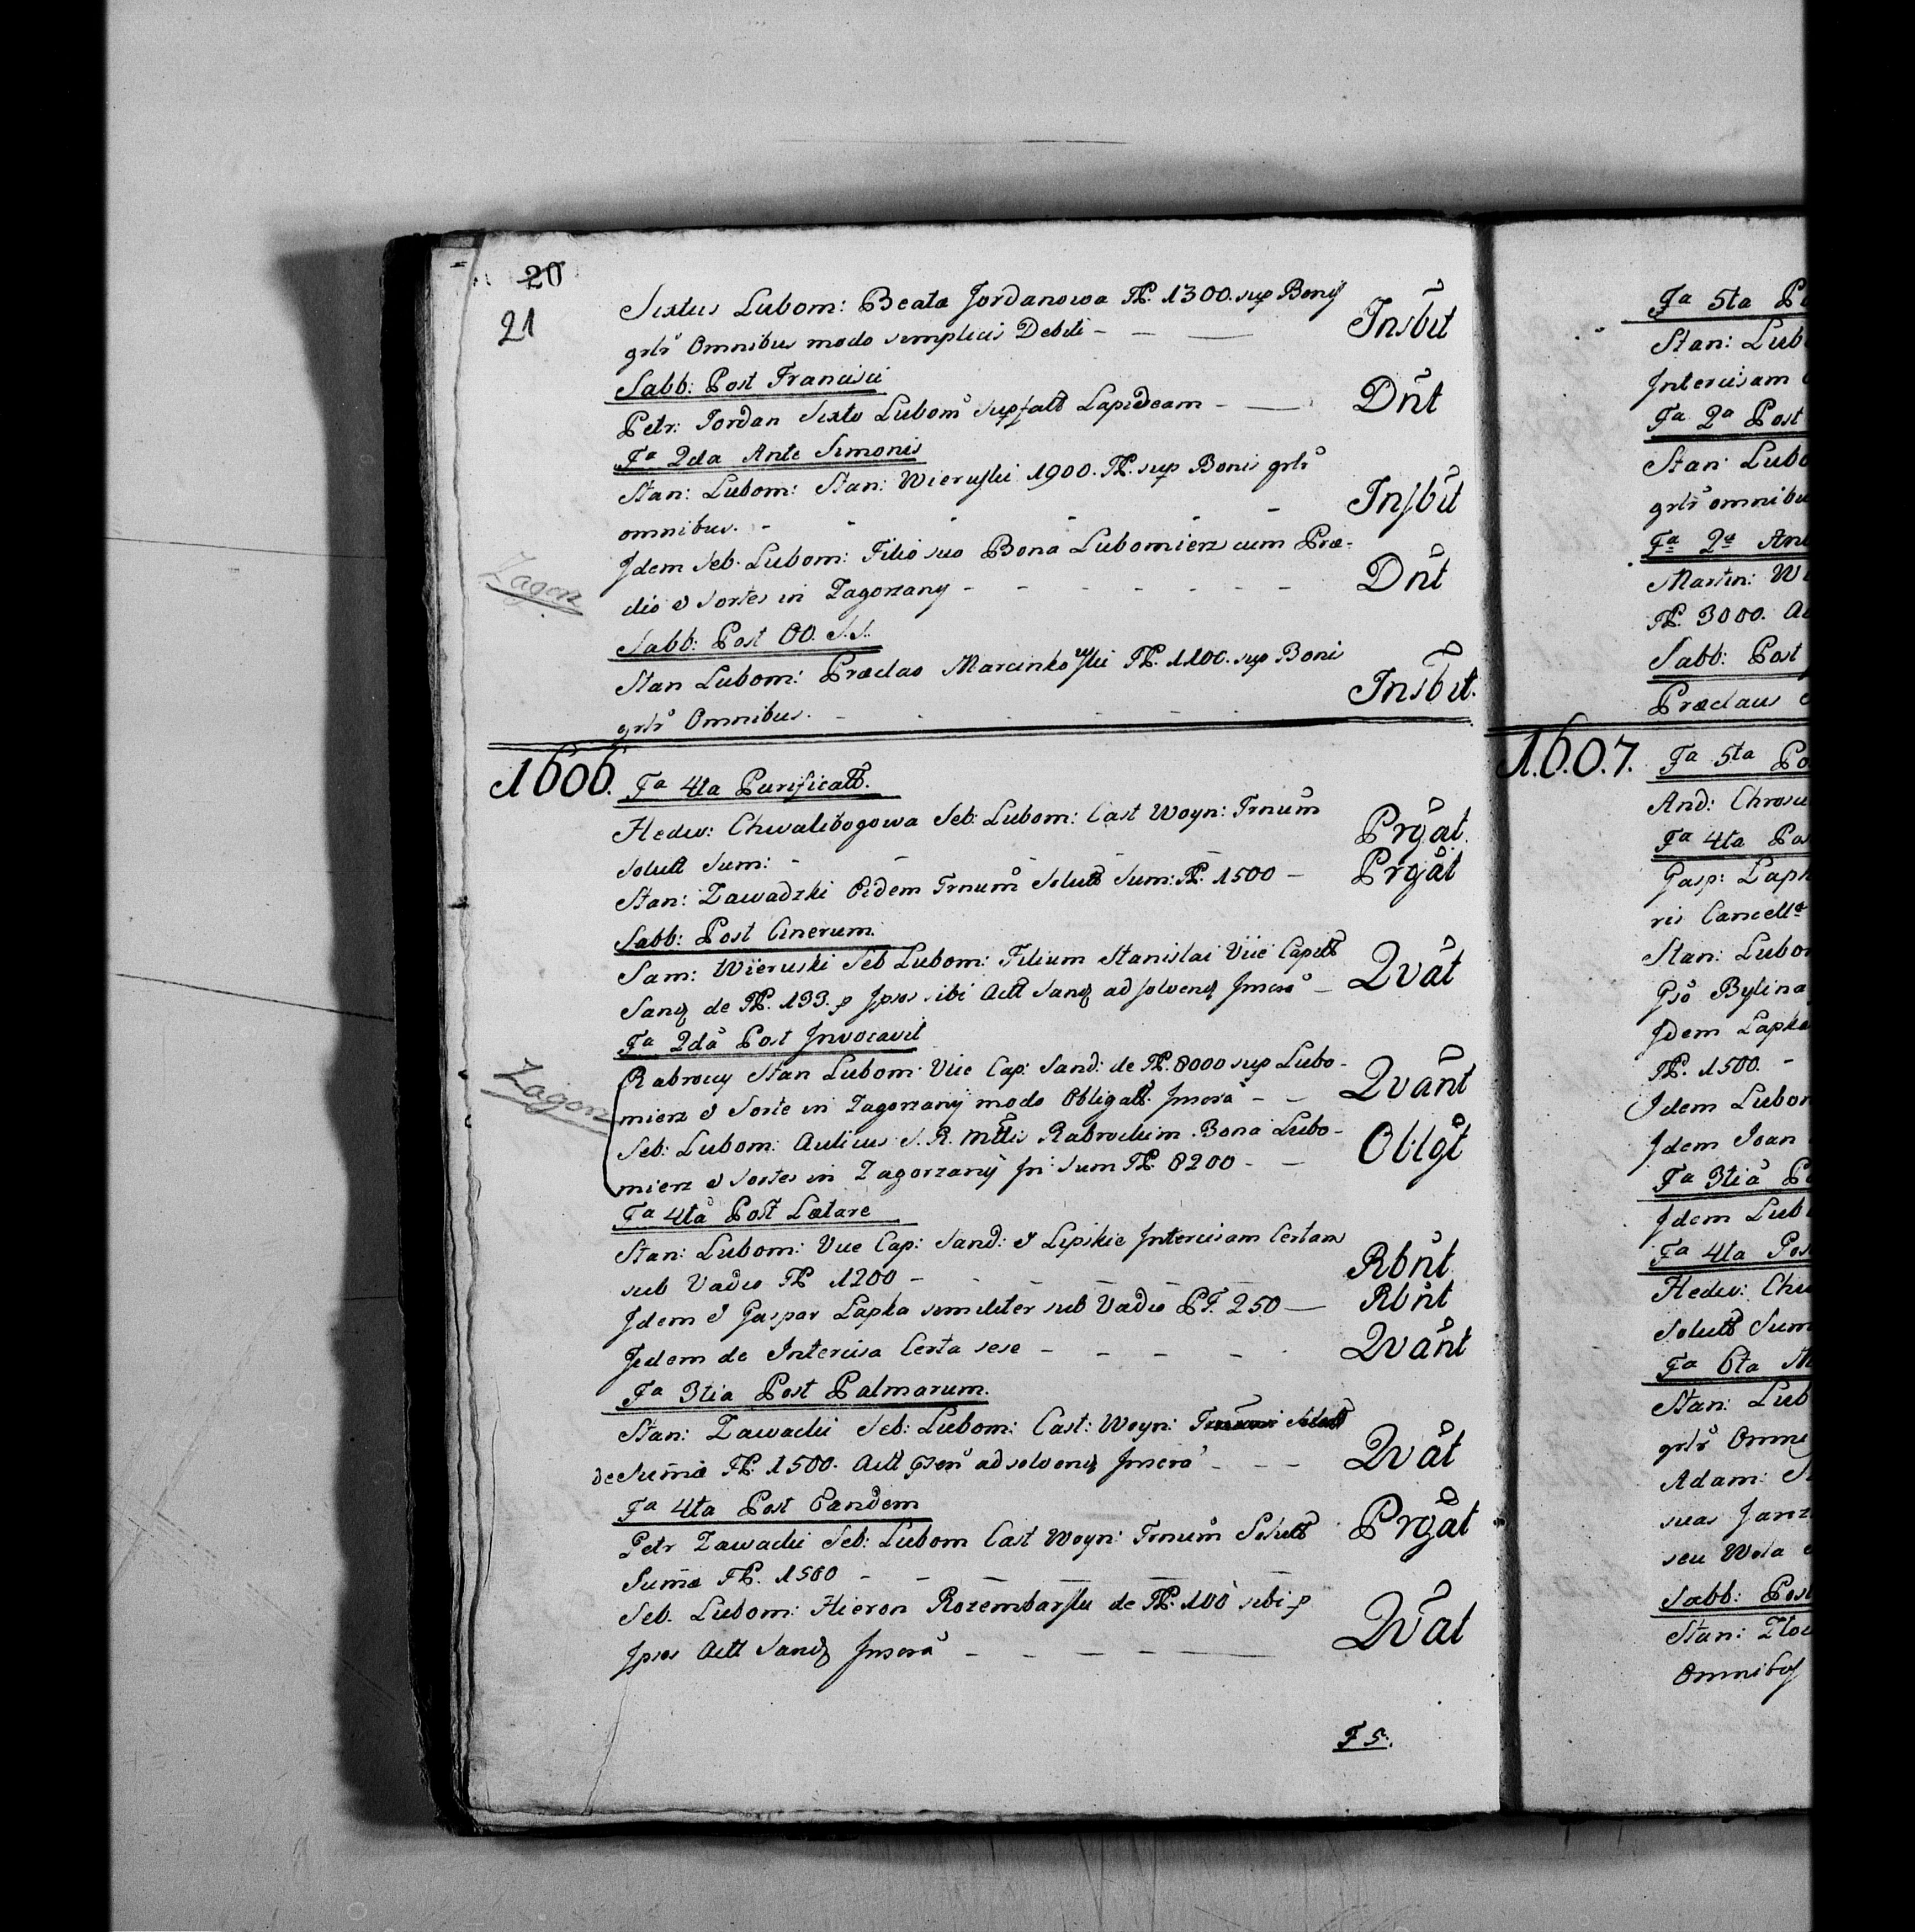 20
21
Sixtus Lubom: Beata Jordanowa FP. 1300. sup Bonis
grlr Omnibus modo simplicis Debiti - Insbit
Sabb: Post Francisci
Petr: Jordan Sixto Lubom supfatt Lapideam - Dnt
Fa 2da Ante Simonis
Stan: Lubom: Stan: Wieruski 1900. FP. sup Bonis grlr
omnibus. - Insbit
Idem Seb. Lubom: Filio suo Bona Lubomierz cum Præ-
Zagorz
dio & Sortes in Zagorzany - Dnt
Sabb: Post OO. S.S.
Stan Lubom: Præclao Marcinkowski FP. 1100. sup Boni
grlr Omnibus. - Insbit.
1606.
Fa 4ta Purificatt.
Hedw: Chwalibogowa Seb: Lubom: Cast Woyn: Trnum
solutt Sum: - Prgat.
Stan: Zawadzki Eidem Trnum Solutt Sum: FP. 1500 - Prgat
Sabb: Post Cinerum.
Sam: Wieruski Seb Lubom: Filium Stanislai Vice Capitt
Sand de FP. 133. p Ipsos sibi Actt Sand ad solvend Inscro - Qvat
Fa 2da Post Invocavit
Rabrocy Stan Lubom: Vice Cap: Sand: de FP. 8000 sup Lubo-
Zagorz
mierz & Sorte in Zagorzany modo Obligatt. Inscra - Qvant
Seb: Lubom: Aulicus S. R. Mttis Rabrockim Bona Lubo-
mierz & Sortes in Zagorzany In Sum FP. 8200 - Oblgt
Fa 4ta Post Lætare
Stan: Lubom: Vice Cap: Sand: & Lipskie Intercisam Certam
sub Vadio FP 1200 - Rbnt
Idem & Gaspar Lapka similiter sub Vadio FP. 250 - Rbnt
Iidem de Intercisa Certa sese - Qvant
Fa 3tia Post Palmarum.
Stan: Zawacki Seb: Lubom: Cast: Woyn:
de Suma FP. 1500. Actt psen ad solvend Inscro - Qvat
Fa 4ta Post Eandem
Petr Zawacki Seb: Lubom Cast Woyn: Trnum Solutt
Suma FP. 1500 - Prgat
Seb. Lubom: Hieron Rozembarski de FP. 100 sibi p
Ipsos Actt Sand Inscra - Qvat
F 5.
Fa 5ta Po
Stan: Lub
Intercisam
Fa 2a Post
Stan: Lubo
grlr omnibu
Fa 2a Ant
Martin: W
FP. 3000.
Sabb: Post
Præclaus
1.6.0.7.
Fa 5ta Po
And: Chrosc
Fa 4ta Pos
Gasp: Lapk
ris Cancell
Stan: Lubo
Gso Bylina
Idem Lapka
FP. 1500. -
Idem Lubom
Idem Joan
Fa 3tia P
Idem Lub
Fa 4ta Pos
Hedw: Chw
Solutt Sum
Fa 6ta M
Stan: Lub
grlr Omni
Adam: S
suas Janz
seu Wola
Sabb: Post
Stan: Zloc
Omnibus